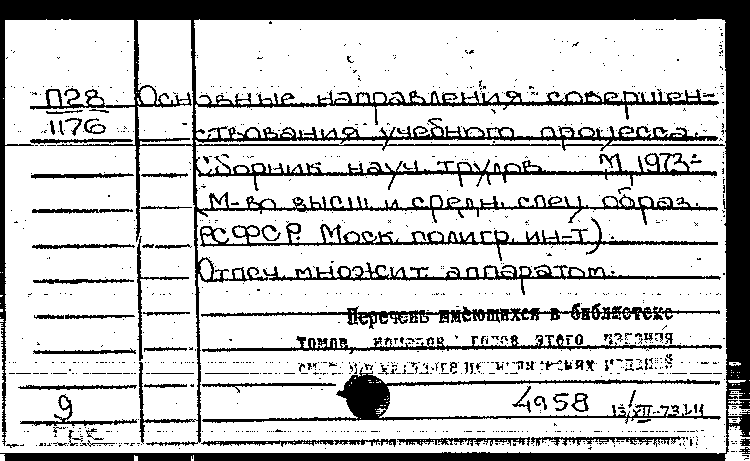 П28 Основные направления совершен-
1176 ствования учебного процесса.
Сборник науч. трудов М, 1973-
(М-во высш и средн. спец. образ.
РСФСР. Моск. полигр. ин-т).
Отпеч. множит аппаратом.
Перечень имеющихся в библиотеке
томов, номеров годов этого издания
9 4958 13/XII-73